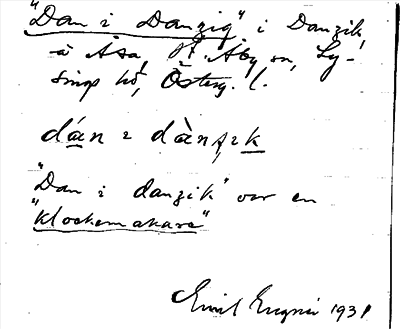 "Dan i Danzig" i Danzik,
å Åsa, St. Åby sn, Ly-
sings hd, Österg. l.
dán ɩ dànsɩk
"Dan i danzik" var en
"klockemakare"
Emil 1931